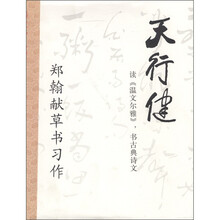 天行健
读《温文尔雅》，书古典诗文
郑翰献草书习作